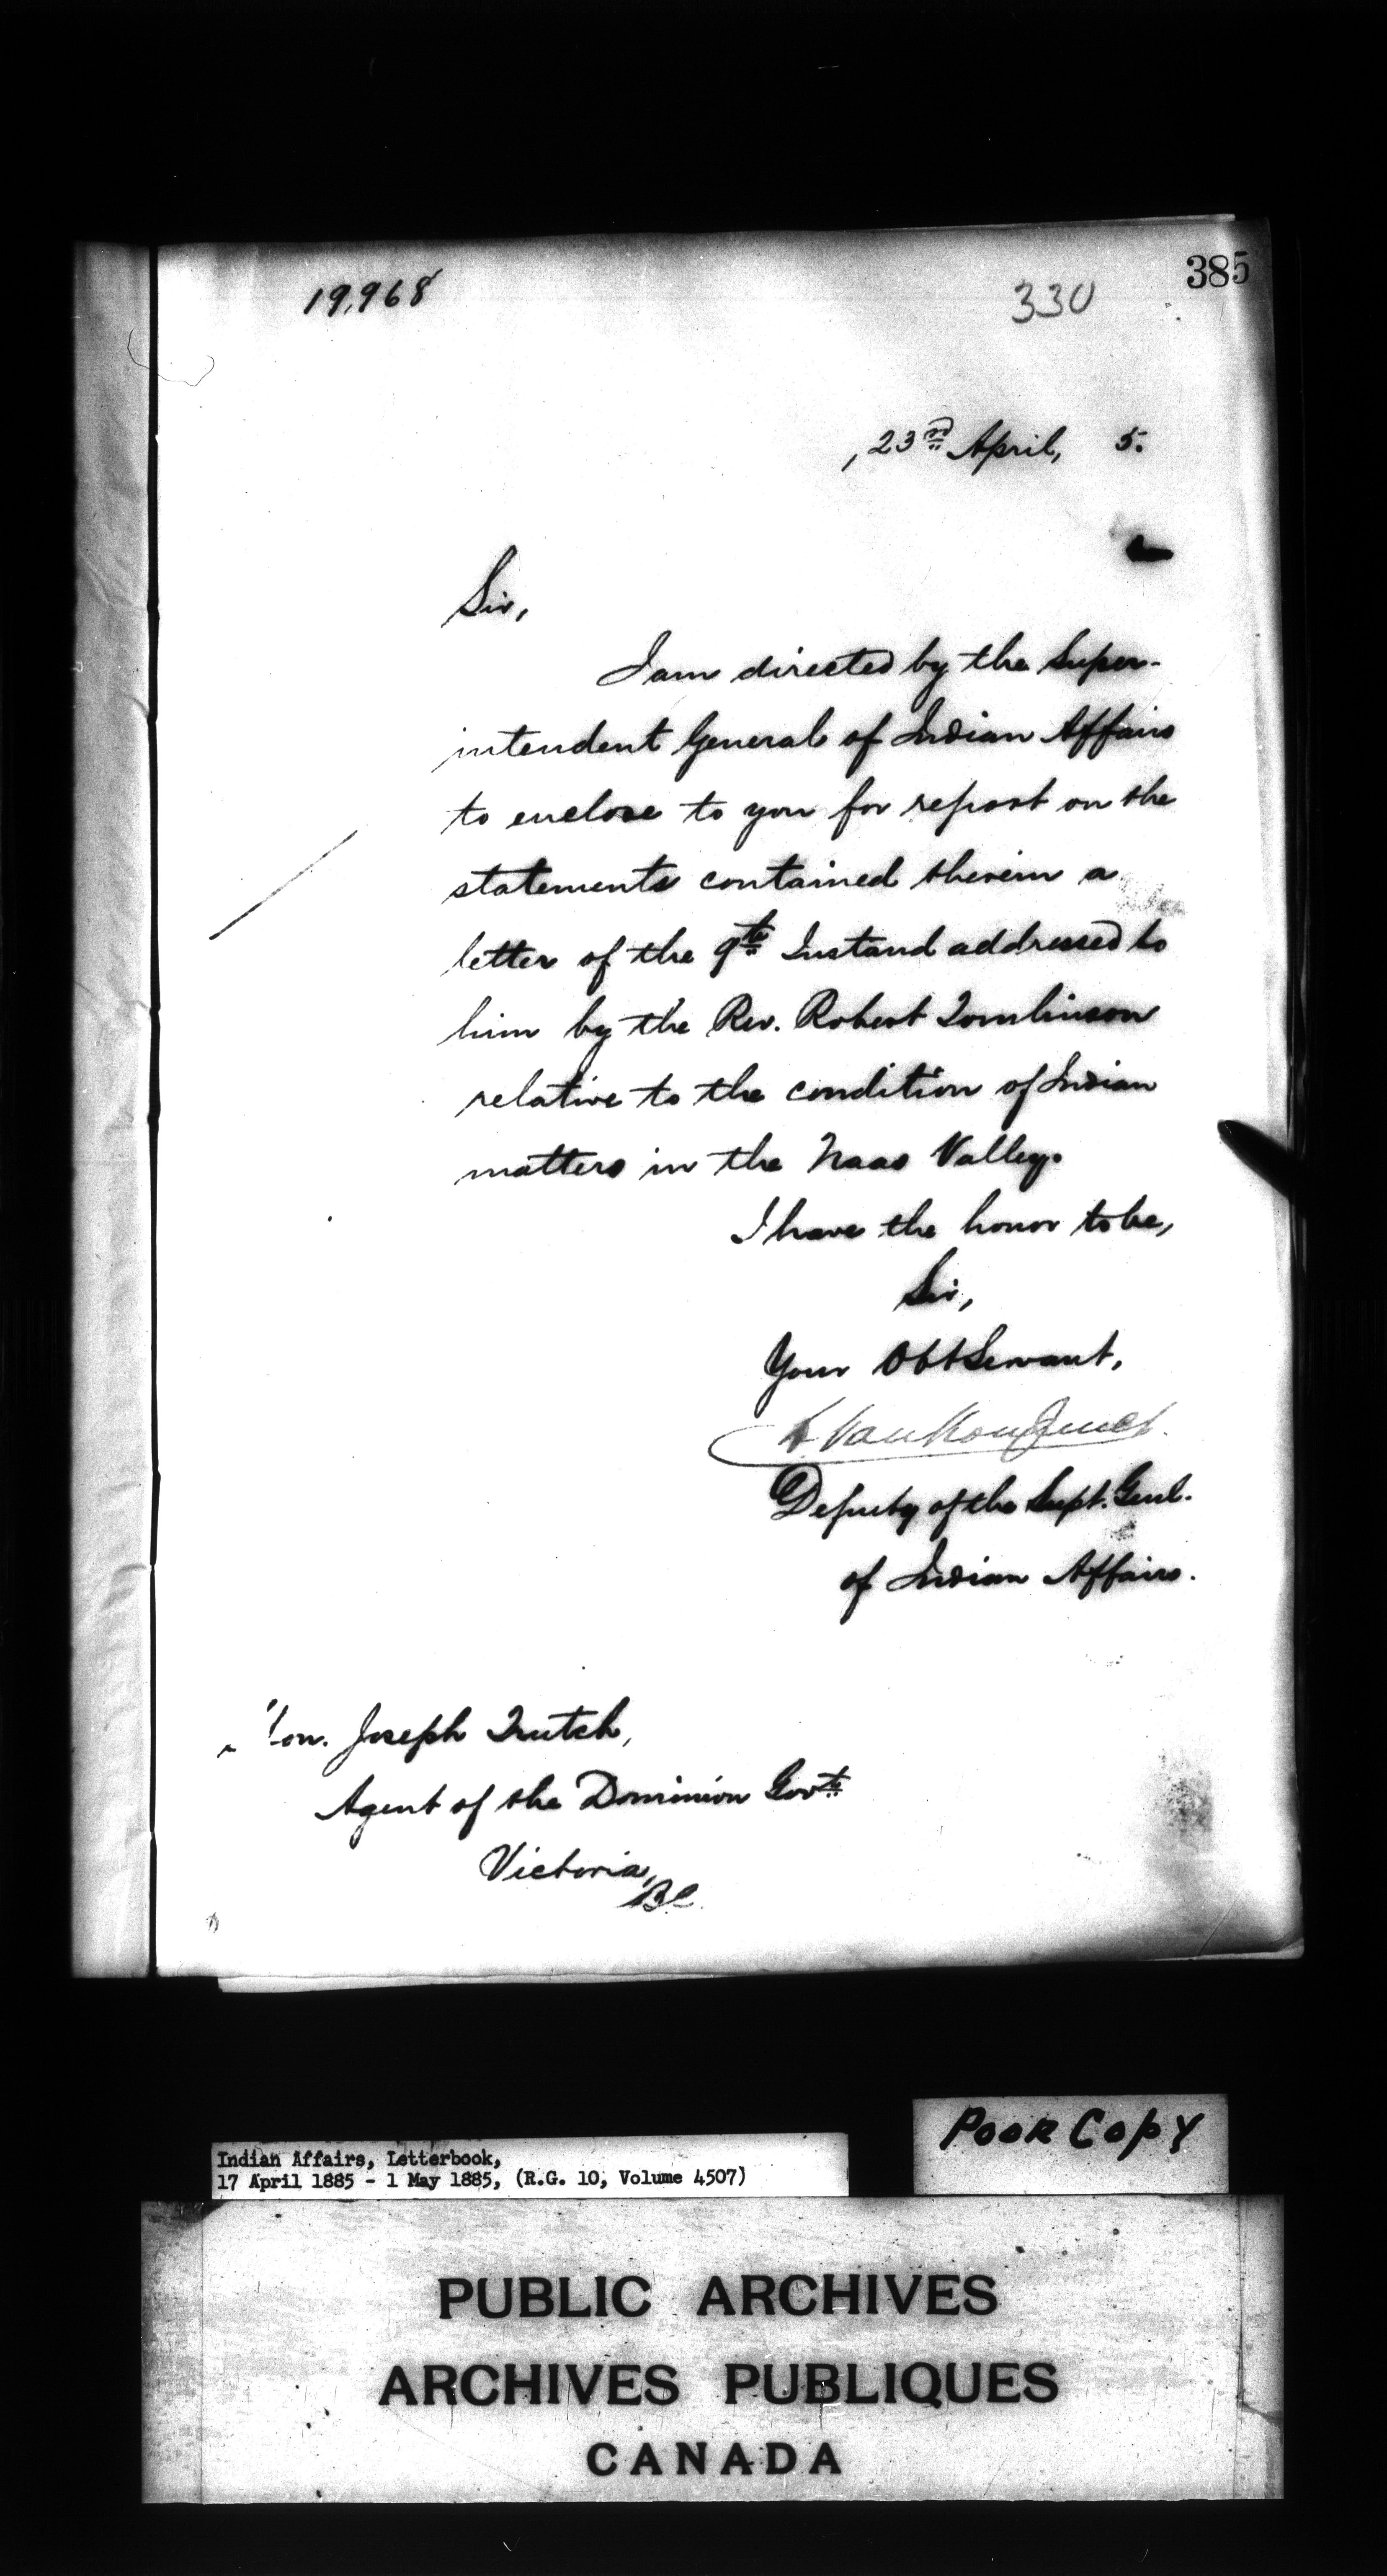 385
19,968
330
, 23rd April, 5.
Sir,
I am directed by the Super-
intendent General of Indian Affairs
to enclose to you for report on the
statements contained therein a
letter of the 9th Instand addressed to
him by the Rev. Robert Tomlinson
relative to the condition of Indian
matters in the Naas Valley.
I have the honor to be,
Sir,
Your Obt Servant,
L VanKoughnet.
Deputy of the Supt. Genl.
of Indian Affairs.
Hon. Joseph Trutch,
Agent of the Dominion Govt.
Victoria,
B.C.
Poor Copy
Indian Affairs, Letterbook,
17 April 1885 - 1 May 1885, (R.G. 10, Volume 4507)
PUBLIC ARCHIVES
ARCHIVES PUBLIQUES
CANADA